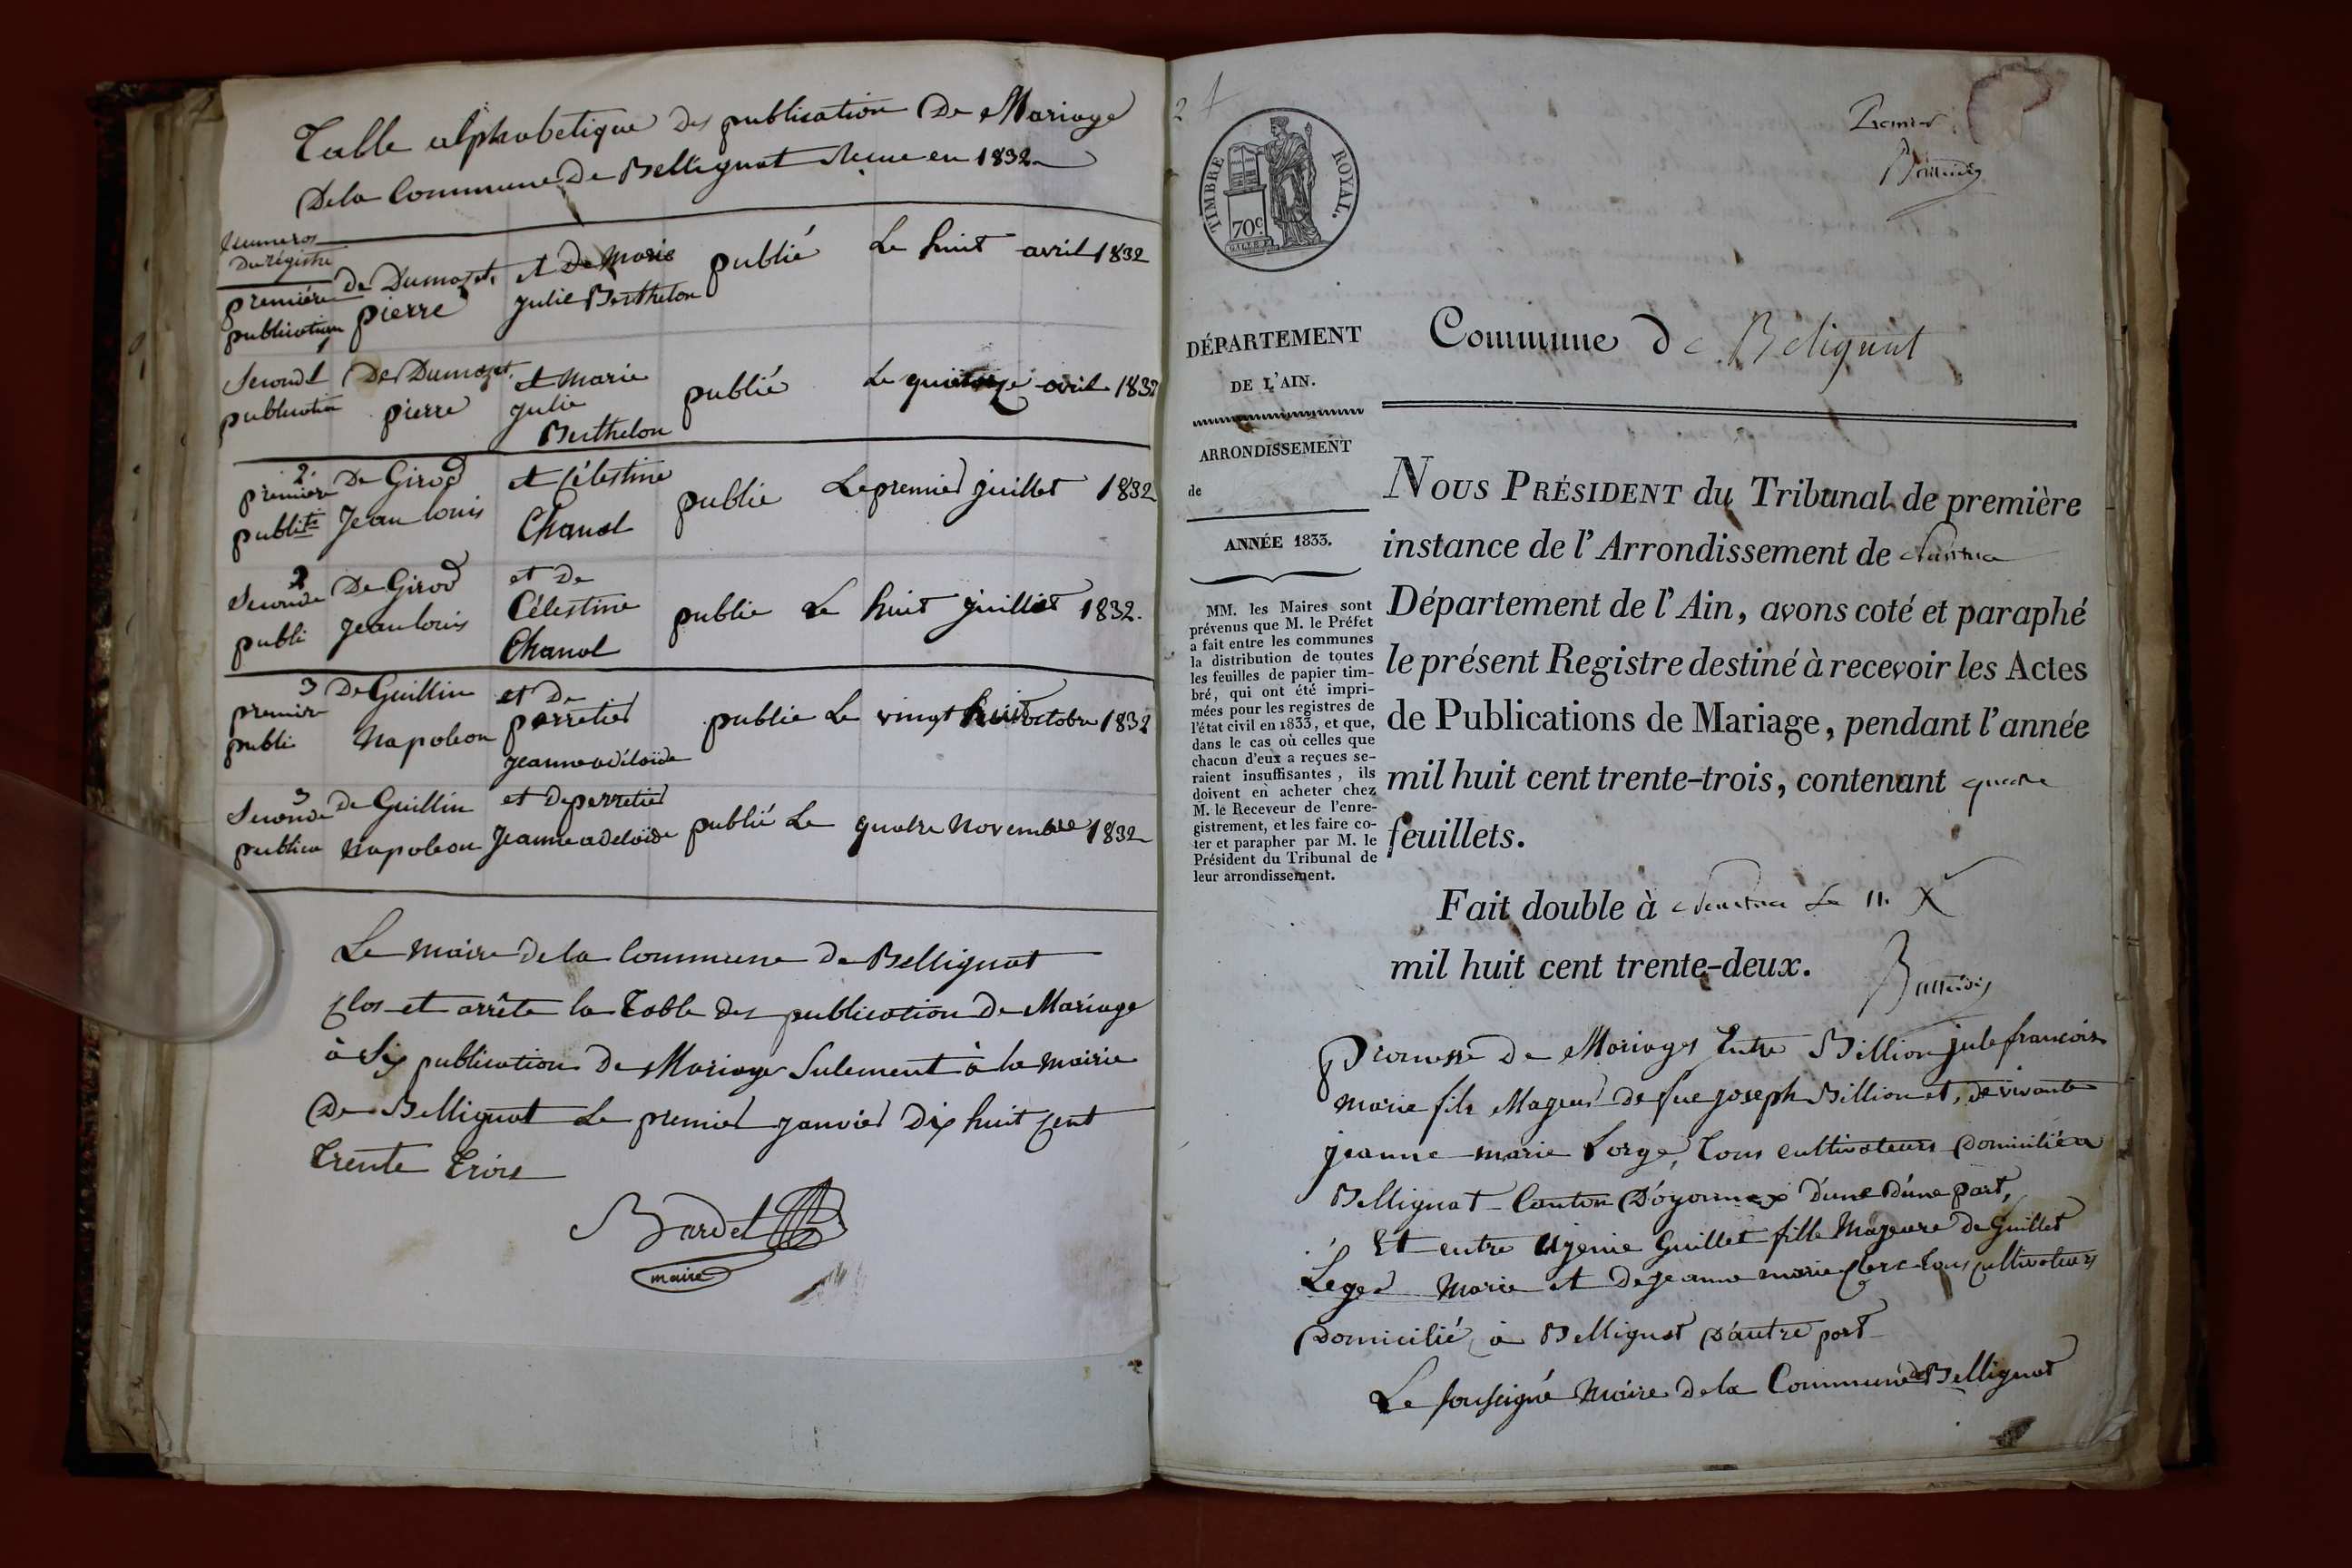 Table alphabetique des publication De Mariage
De la Commune De Bellignat Recue en 1832
Numeros
Du régistre
première publication 1 de Dumozet pierre et De Marie Julie Berthelon publié Le huit avril 1832
Second publication De Dumozet pierre et Marie Julie Berthelon publié Le quinze avril 1832
2 première publi De Girod Jean louis et Célestine Chanal publie Le premier juillet 1832
2 Seconde publi De Girod Jean louis et De Célestine Chanal publie Le huit juillet 1832.
3 premire publi De Guillin Napoleon et De perretier Jeanne adélaïde publie Le vingt huit octobre 1832
3 Seconde publica De Guillin Napoleon et De perretier Jeanne adelaïde publié Le quatre Novembre 1832
Le Maire De la Commune De Bellignat
Clos et arrête la Table des publication De Mariage
à Six publication De Mariage Sulement à la Mairie
De Bellignat Le premier janvier Dix huit Cent
Trente Trois
Bardet
maire
2
Premier
TIMBRE ROYAL.
70c.
DÉPARTEMENT
DE L'AIN.
ARRONDISSEMENT
de
ANNÉE 1833.
MM. les Maires sont
prévenus que M. le Préfet
a fait entre les communes
la distribution de toutes
les feuilles de papier tim-
bré, qui ont été impri-
mées pour les registres de
l'état civil en 1833, et que,
dans le cas où celles que
chacun d'eux a reçues se-
raient insuffisantes, ils
doivent en acheter chez
M. le Receveur de l'enre-
gistrement, et les faire co-
ter et parapher par M. le
Président du Tribunal de
leur arrondissement.
Commune de Belignat
NOUS PRÉSIDENT du Tribunal de première
instance de l'Arrondissement de Nantua
Département de l'Ain, avons coté et paraphé
le présent Registre destiné à recevoir les Actes
de Publications de Mariage, pendant l'année
mil huit cent trente-trois, contenant quatre
feuillets.
Fait double à Nantua Le 11. X
mil huit cent trente-deux.
Promesse De Mariages Entre Billion jule françois
Marie fils Mageur de fue joseph Billion et, de vivante
jeanne marie Lorge, Tous cultivateurs Domicilié a
Bellignat Canton D'oyonnax d'une d'une part,
Et entre Ugenie Guillet fille Majeure de Guillet
Leger Marie et De jeanne marie Clerc tous cultivateurs
Domicilié à Bellignat D'autre part
Le Soussigné Maire De la Commune de Bellignat